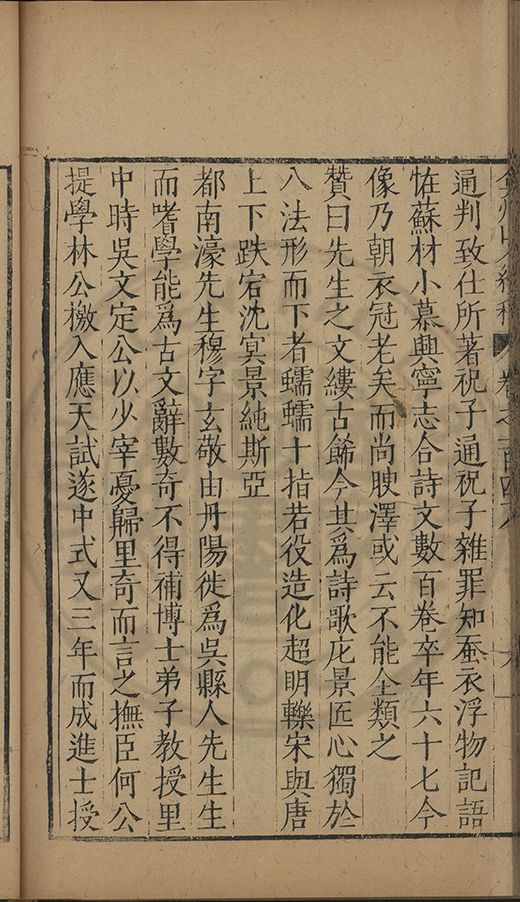 通判致仕所著祝子通祝子雜罪知蚕衣浮物記語
恠蘇材小慕興寧志合詩文數百卷卒年六十七今
像乃朝衣冠老矣而尚腴澤或云不能全類之
贊曰先生之文縷古餙今其爲詩歌庀景匠心獨於
八法形而下者蠕蠕十指若役造化超明轢宋與唐
上下跌宕沈冥景純斯亞
都南濠先生穆字玄敬由丹陽徙爲吳縣人先生生
而嗜學能爲古文辭數奇不得補博士弟子教授里
中時吳文定公以少宰憂歸里奇而言之撫臣何公
提學林公檄入應天試遂中式又三年而成進士授